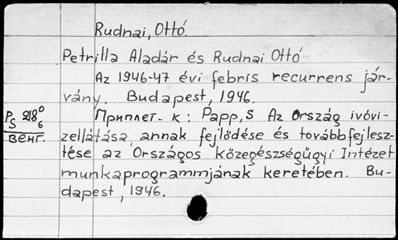 Rudnai, Ottó.
Petrilla Aladár és Rudnai Ottó
Az 1946-47 évi febris recurrens jár-
vány. Budapest, 1946.
Приплет-к: Papp, S Az Ország ivóvi-
zellátása, annak fejlődése és továbbfejlesz-
tése az Országos közegészségűgyi Intézet
munkaprogrammjának keretében. Bu-
dapest, 1946.
венг.